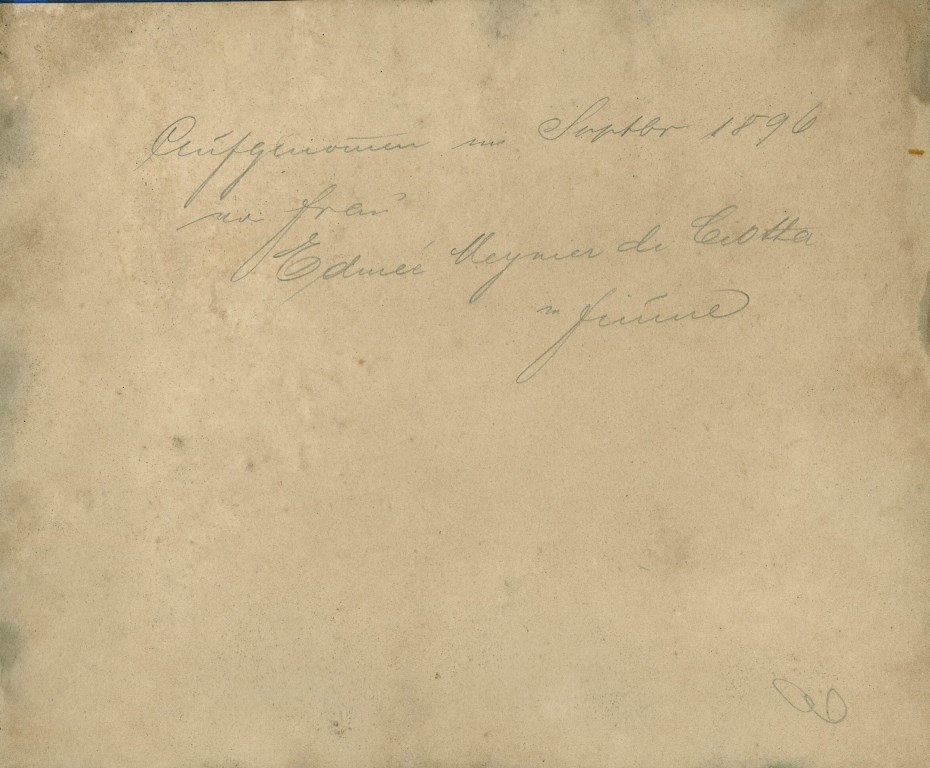 Aufgenomen im Septbr 1896
von Frau
Edmeé Meynier de Ciotta
in Fiume